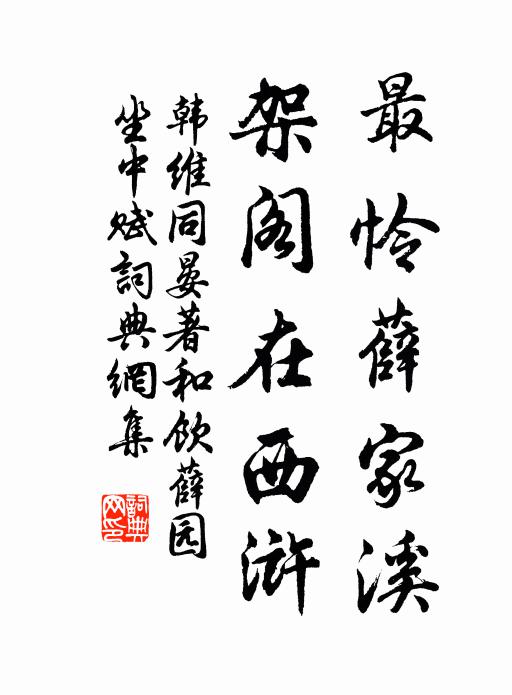 最怜薛家溪
架阁在西浒
韩维同晏著和饮薛园
坐中赋詞典網集
詞典网印